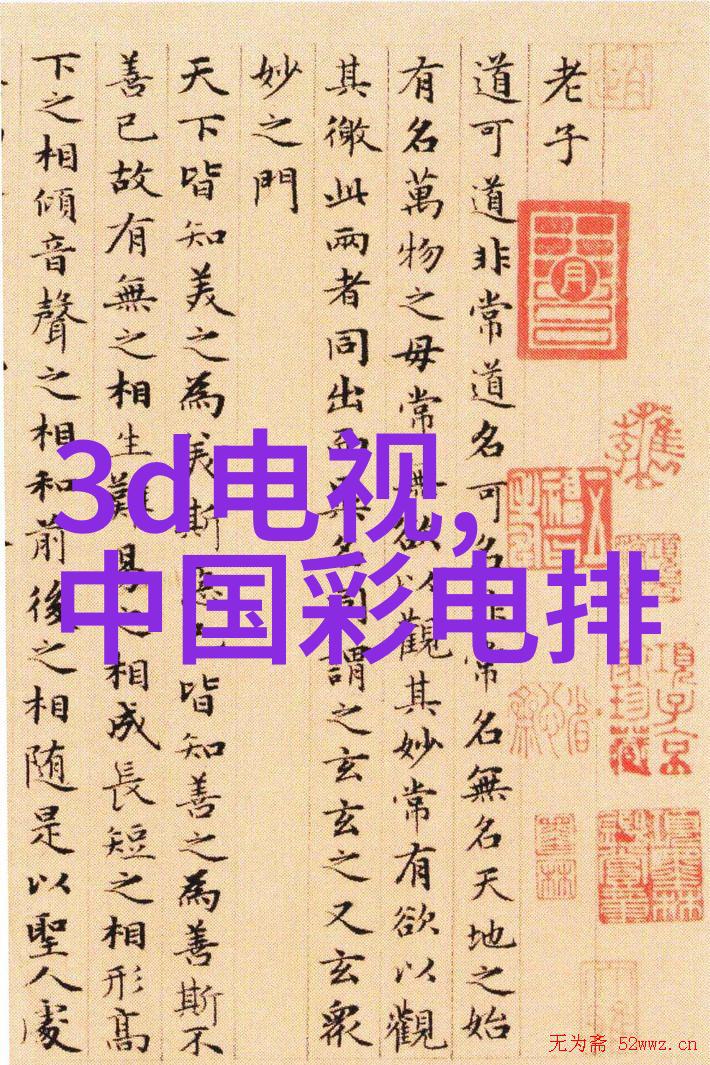 老子
道可道非常道名可名非常名無名天地之始
有名萬物之母常無欲以觀其妙常有欲以觀
其徼此兩者同出而異名同謂之玄玄之又玄衆
妙之門
天下皆知美之為美斯惡已皆知善之為善斯不
善已故有無之相生難易之相成長短之相形高
下之相傾音聲之相和前後之相随是以聖人處
3d电视,
中国彩电排
无为斋 52wwz.cn